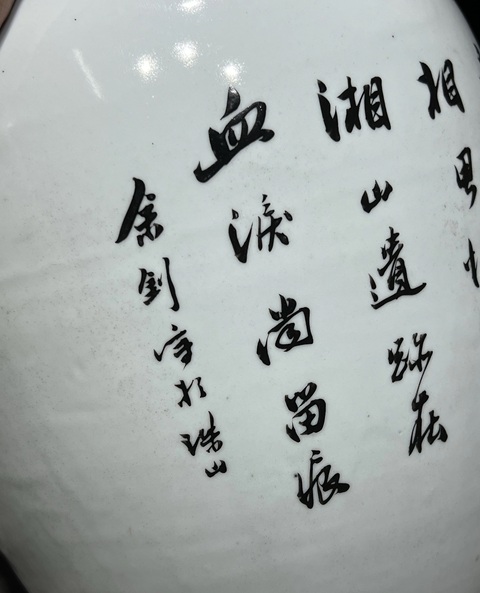 相思
湘山遺跡在
血淚尚留痕
余釗写於珠山